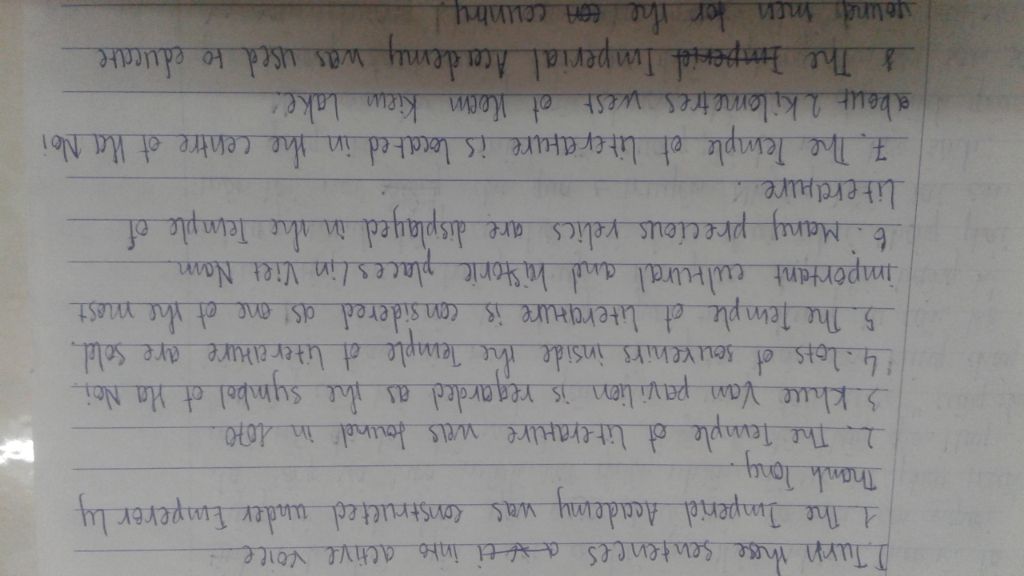 I. Turn these sentences into active voice
1. The Imperial Academy was constructed under Emperor Ly
Thanh Tong.
2. The Temple of Literature was found in 1070.
3 Khue Van pavilion is regarded as the symbol of Ha Noi
4. Lots of souvenirs inside the Temple of Literature are sold.
5. The Temple of Literature is considered as one of the most
important cultural and historic places in Viet Nam.
6. Many precious relics are displayed in the Temple of
Literature
7. The Temple of Literature is located in the centre of Ha Noi
about 2 kilometres west of Hoan Kiem Lake.
8 The Imperial Imperial Academy was used to educate
young men for the con country.